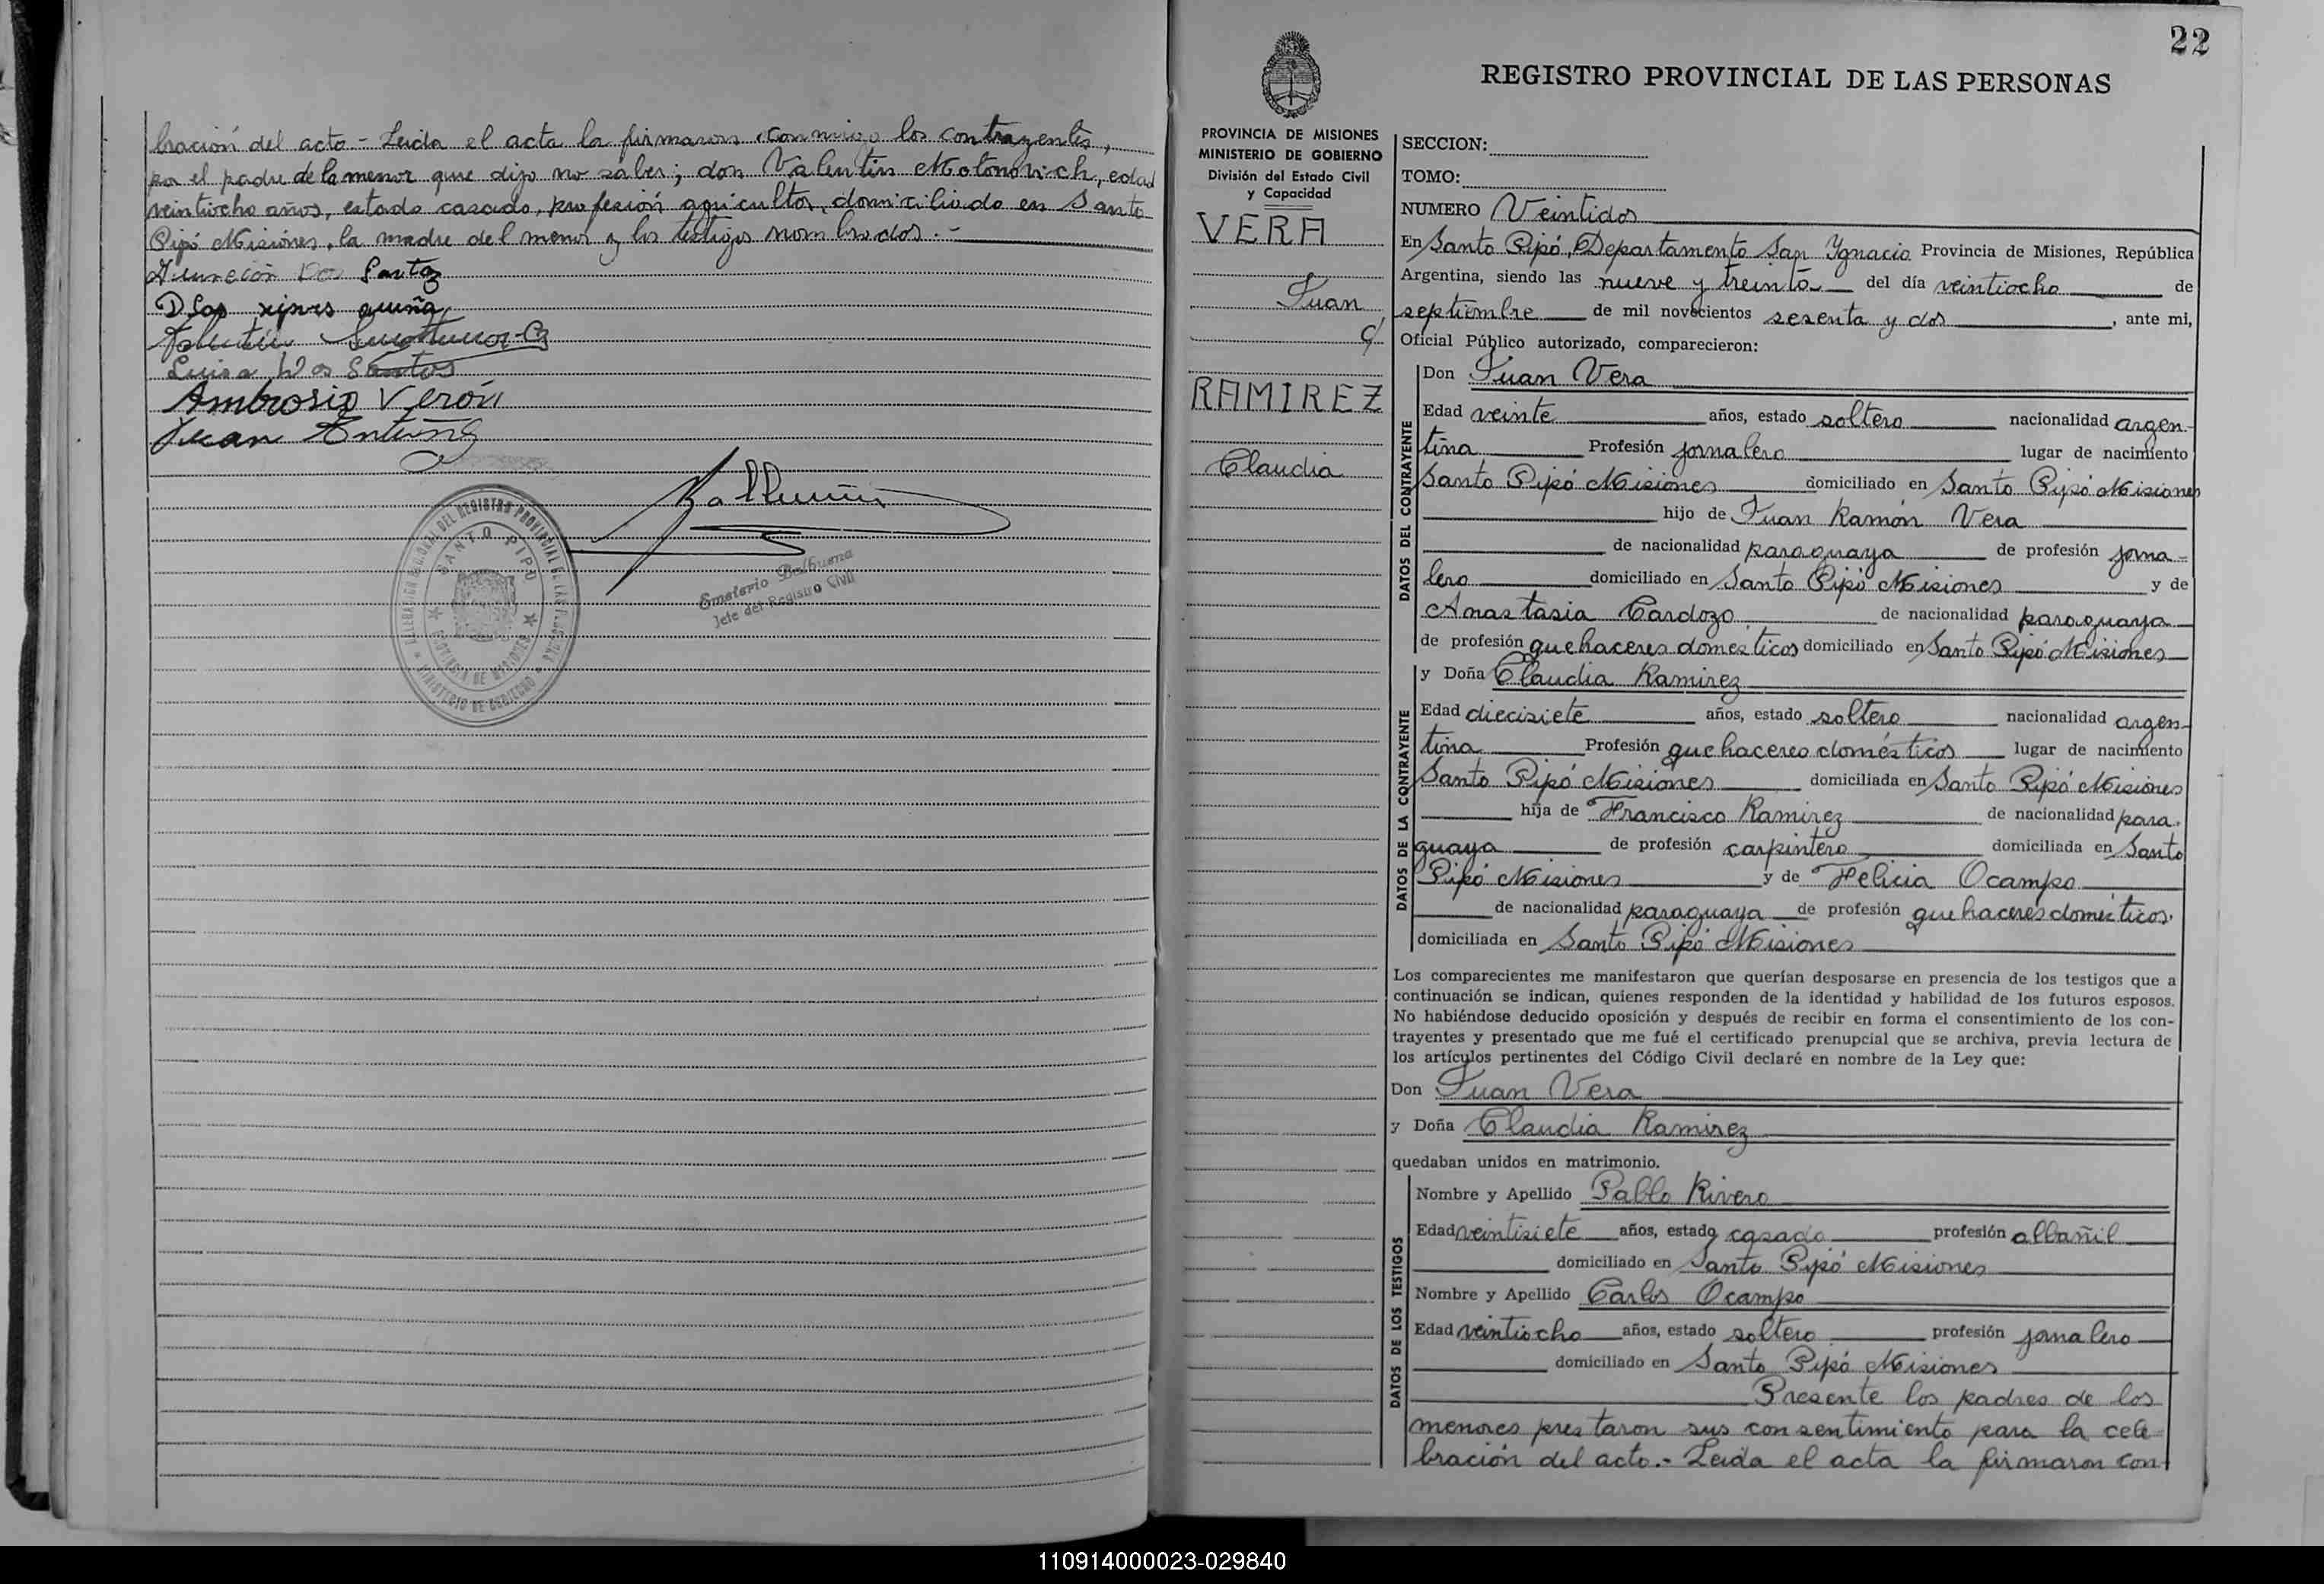 bración del acto - Leida el acta la firmaron conmigo los contrayentes,
por el padre de la menor que dijo no saber; don Valentin Motonovich, edad
veintiocho años, estado casado, profesión agricultor, domiciliado en Santo
Pipó Misiones, la madre del menor y los testigos nombrados.-
Luisa Dos Santos
Ambrosio Verón
Juan
DELEGACION REGIONAL DEL REGISTRO PROVINCIAL DE LAS PERSONAS
SANTO PIPO
PROVINCIA DE MISIONES
MINISTERIO DE GOBIERNO
Emeterio Balbuena
Jefe del Registro Civil
22
REGISTRO PROVINCIAL DE LAS PERSONAS
PROVINCIA DE MISIONES
MINISTERIO DE GOBIERNO
División del Estado Civil
y Capacidad
VERA
Juan
c/
RAMIREZ
Claudia
SECCION:
TOMO:
NUMERO Veintidos
En Santo Pipó, Departamento San Ignacio Provincia de Misiones, República
Argentina, siendo las nueve y treinta del día veintiocho de
septiembre de mil novecientos sesenta y dos, ante mi,
Oficial Público autorizado, comparecieron:
DATOS DEL CONTRAYENTE
Don Juan Vera
Edad veinte años, estado soltero nacionalidad argen-
tina Profesión jornalero lugar de nacimiento
Santo Pipó Misiones domiciliado en Santo Pipó Misiones
hijo de Juan Ramón Vera
de nacionalidad paraguaya de profesión jorna-
lero domiciliado en Santo Pipó Misiones y de
Anastasia Cardozo de nacionalidad paraguaya
de profesión quehaceres domésticos domiciliado en Santo Pipó Misiones
DATOS DE LA CONTRAYENTE
y Doña Claudia Ramirez
Edad diecisiete años, estado soltero nacionalidad argen-
tina Profesión quehaceres domésticos lugar de nacimiento
Santo Pipó Misiones domiciliada en Santo Pipó Misiones
hija de Francisco Ramirez de nacionalidad para-
guaya de profesión carpintero domiciliada en Santo
Pipó Misiones y de Felicia Ocampo
de nacionalidad paraguaya de profesión quehaceres domésticos.
domiciliada en Santo Pipó Misiones
Los comparecientes me manifestaron que querían desposarse en presencia de los testigos que a
continuación se indican, quienes responden de la identidad y habilidad de los futuros esposos.
No habiéndose deducido oposición y después de recibir en forma el consentimiento de los con-
trayentes y presentado que me fué el certificado prenupcial que se archiva, previa lectura de
los artículos pertinentes del Código Civil declaré en nombre de la Ley que:
Don Juan Vera
y Doña Claudia Ramirez
quedaban unidos en matrimonio.
DATOS DE LOS TESTIGOS
Nombre y Apellido Pablo Rivero
Edad veintisiete años, estado casado profesión albañil
domiciliado en Santo Pipó Misiones
Nombre y Apellido Carlos Ocampo
Edad veintiocho años, estado soltero profesión jornalero
domiciliado en Santo Pipó Misiones
Presente los padres de los
menores prestaron sus consentimiento para la cele-
bración del acto.- Leida el acta la firmaron con-
110914000023-029840